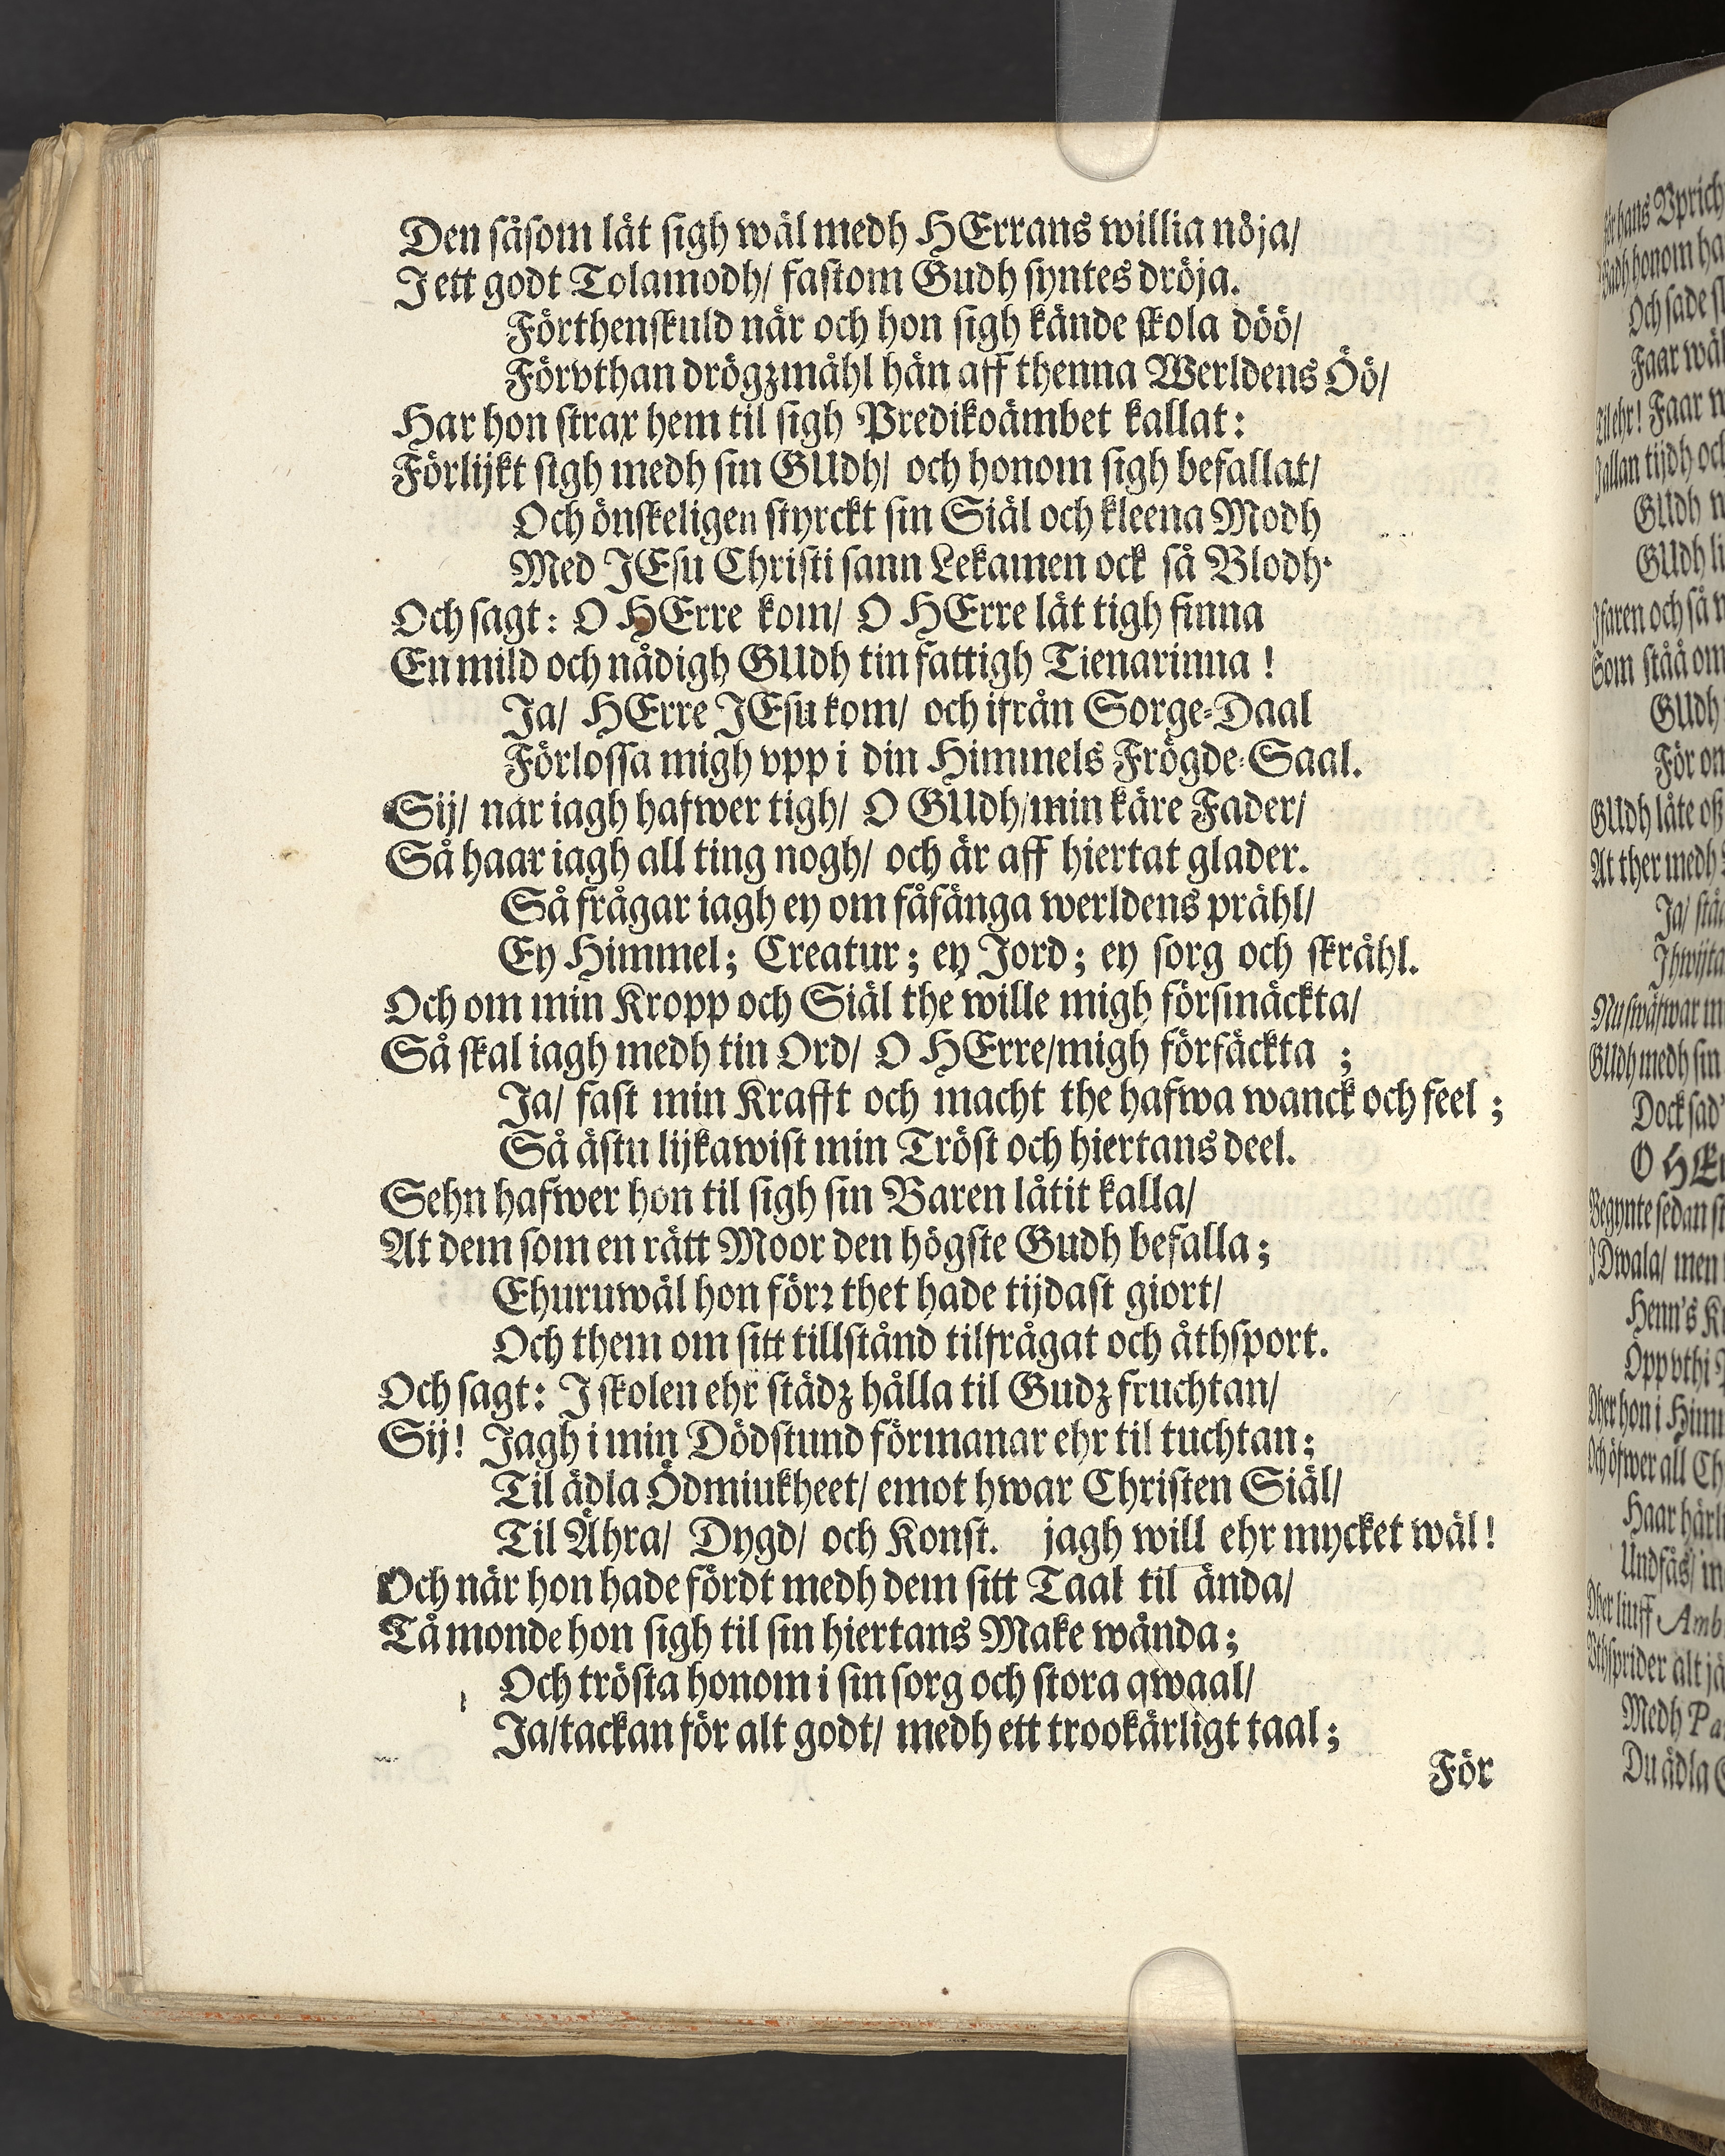 Den såsom lät sigh wäl medh HErrans willia nöja/
J ett godt Tolamodh/ fastom Gudh syntes dröja.
Förthenskuld när och hon sigh kände skola döö/
Förvthan drögzmåhl hän aff thenna Werldens Öö/
Har hon strax hem til sigh Predikoämbet kallat:
Förlijkt sigh medh sin GUdh/ och honom sigh befallat/
Och önskeligen styrckt sin Siäl och kleena Modh
Med JEsu Christi sann Lekamen ock så Blodh.
Och sagt: O HErre kom/ O HErre lät tigh finna
En mild och nådigh GUdh tin fattigh Tienarinna!
Ja/ HErre JEsu kom/ och ifrån Sorge-Daal
Förlossa migh vpp i din Himmels Frögde-Saal.
Sij/ när iagh hafwer tigh/ O GUdh/min käre Fader/
Så haar iagh all ting nogh/ och är aff hiertat glader.
Så frågar iagh ey om fåfänga werldens prähl/
Ey Himmel; Creatur; ey Jord; ey sorg och skråhl.
Och om min Kropp och Siäl the wille migh försmäckta/
Så skal iagh medh tin Ord/ O HErre/migh förfäckta;
Ja/ fast min Krafft och macht the hafwa wanck och feel;
Så ästu lijkawist min Tröst och hiertans deel.
Sehn hafwer hon til sigh sin Baren låtit kalla/
At dem som en rätt Moor den högste Gudh befalla;
Ehuruwäl hon förꝛ thet hade tijdast giort/
Och them om sitt tillstånd tilfrågat och åthsport.
Och sagt: J skolen ehr städz hålla til Gudz fruchtan/
Sij! Jagh i min Dödstund förmanar ehr til tuchtan;
Til ädla Ödmiukheet/ emot hwar Christen Siäl/
Til Ähra/ Dygd/ och Konst. jagh will ehr mycket wäl!
Och när hon hade fördt medh dem sitt Taal til ända/
Tå monde hon sigh til sin hiertans Make wända;
Och trösta honom i sin sorg och stora qwaal/
Ja/tackan för alt godt/ medh ett trookärligt taal;
För